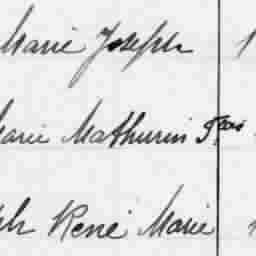 Marie Joseph 1
Marie Mathurin Fçois
ph René Marie 1